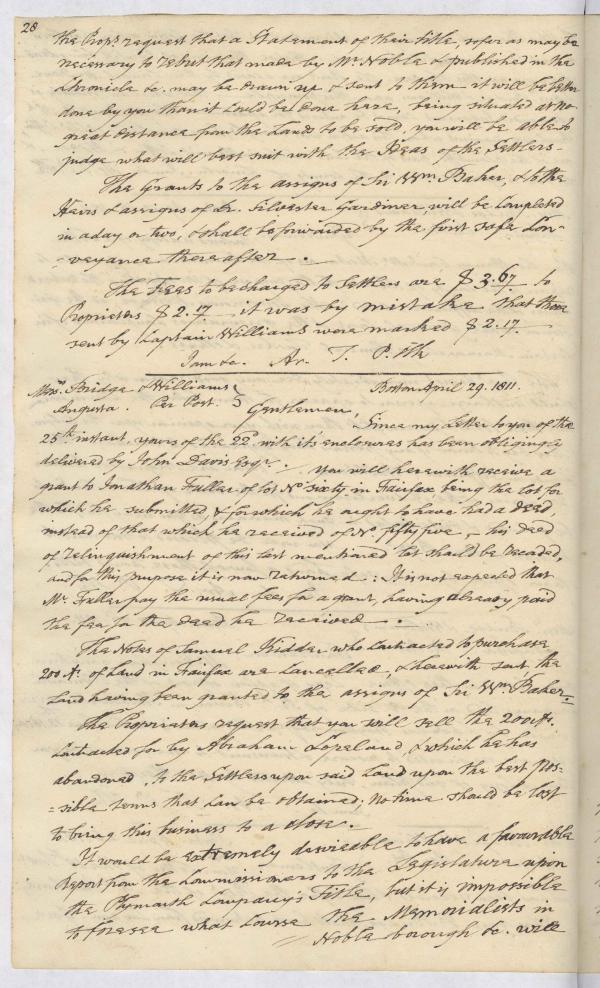 28
the Prop.s request that a Statement of their title, so far as may be
necessary to rebut that made by Mr. Noble & published in the
Chronicle &c. may be drawn up & sent to them it will be better
done by you than it could be done here, being situated at no
great distance from the Lands to be sold, you will be able to
judge what will best suit with the Ideas of the Settlers -
The Grants to the assigns of Sir Wm. Baker, & to the
Heirs & assigns of Dr. Silvester Gardiner, will be compleated
in a day or two, & shall be forwarded by the first safe Con-
-veyance thereafter.
The Fees to be charged to Settlers are $3.67 to
Proprietors $2.17 it was by mistake that those
sent by Captain Williams were marked $2.17
I am &c. Ar. T. P. Clk
Mess.rs Bridge & Williams } Boston April 29. 1811.
Augusta. Per Post. } Gentlemen,
Since my Letter to you of the
25th. instant, yours of the 22d. with it's enclosures has been obligingly
delivered by John Davis Esqr. - you will herewith receive a
grant to Jonathan Fuller of lot No. Sixty in Fairfax being the lot for
which he submitted, & for which he ought to have had a deed,
instead of that which he received of No. fifty five, - his deed
of relinquishment of this last mentioned lot should be recorded,
and for this purpose it is now returned: It is not expected that
Mr. Fuller pay the usual fees for a grant, having already paid
the fees for the deed he received.
The Notes of Samuel Kidder who contracted to purchase
200 As. of Land in Fairfax are cancelled, & herewith sent the
Land having been granted to the assigns of Sir Wm. Baker -
The Proprietors request that you will sell the 200 As.
contracted for by Abraham Copeland, & which he has
abandoned, to the Settlers upon said Land upon the best pos-
-sible terms that can be obtained; no time should be lost
to bring this business to a close.
It would be extremely desireable to have a favourable
Report from the Commissioners to the Legislature upon
the Plymouth Company's Title, but it is impossible
to foresee what course the Memorialists in
Nobleborough &c. will